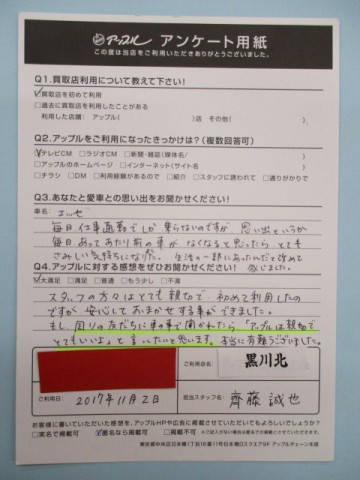 アップル アンケート用紙
この度は当店をご利用いただきありがとうございました。
Q1.買取店利用について教えて下さい!
☑買取店を初めて利用
□過去に買取店を利用したことがある
利用した店舗：アップル( )店 その他( )
Q2.アップルをご利用になったきっかけは?(複数回答可)
☑テレビCM □ラジオCM □新聞・雑誌(媒体名/ )
□アップルのホームページ □インターネット(サイト名 )
□チラシ □DM □利用経験があるので □紹介 □スタッフに誘われて □通りがかりで
Q3.あなたと愛車との思い出をお聞かせください!
車名： エッセ
毎日仕事通勤でしか乗らないのですが 思い出というか
毎日あってあたり前の車が なくなると思ったら とても
さみしい気持ちになりた。 生活の一部にあったんだと改めて
感じました。
Q4.アップルに対する感想をぜひお聞かせください!
☑大満足 □満足 □普通 □もう少し □不満
スタッフの方々はとても親切で 初めて利用したの
ですが 安心しておまかせする事ができました。
もし、周りの友だちに車の事で聞かれたら 「アップルは親切で
とてもいいよ」と言いたいと思います。本当に有難うございました。
ご利用店名： 黒川北
ご利用日： 2017年11月2日
担当スタッフ名： 齊藤誠也
お客様に書いていただいた感想を、アップルHPや広告に掲載させていただいてもよろしいでしょうか?
□実名で掲載可 ☑匿名なら掲載可 □掲載不可
東京都中央区日本橋1丁目16番11号日本橋DスクエアGF アップルチェーン本部